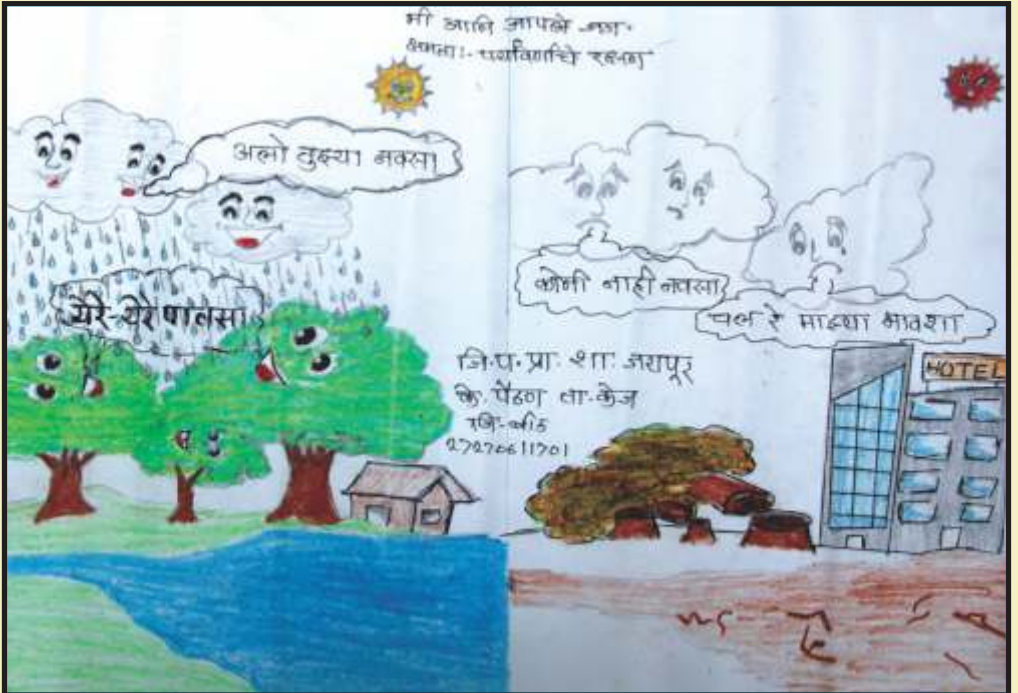 मी आनि आपले जग.
क्षमता:- पर्याविर्णाचे रक्षण
अलो तुझ्या नवसा
येरे-येरे पावसा
कोनी नाही नवसा
चल रे माझ्या भावशा
जि.प.प्रा.शा.जयपूर
के. पैठण ता.केज
जि-बीड
27270611701
HOTEL